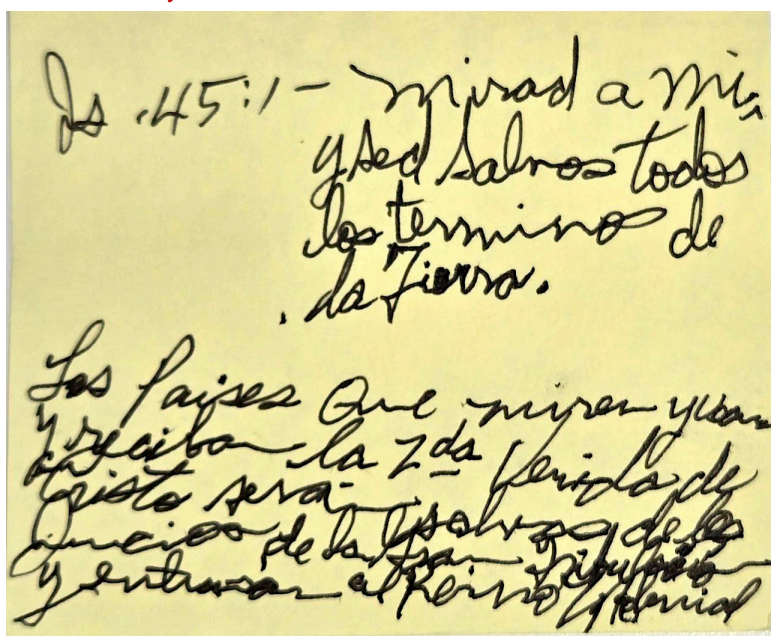 Is .45:1- Mirad a Mi,
y sed salvos todos
los terminos de
. la Tierra.
Los Paises Que miren y vean
y reciban la 2da Venida de
Cristo seran
Juicios de la Gran Tribulación
y entraran al Reino Milenial